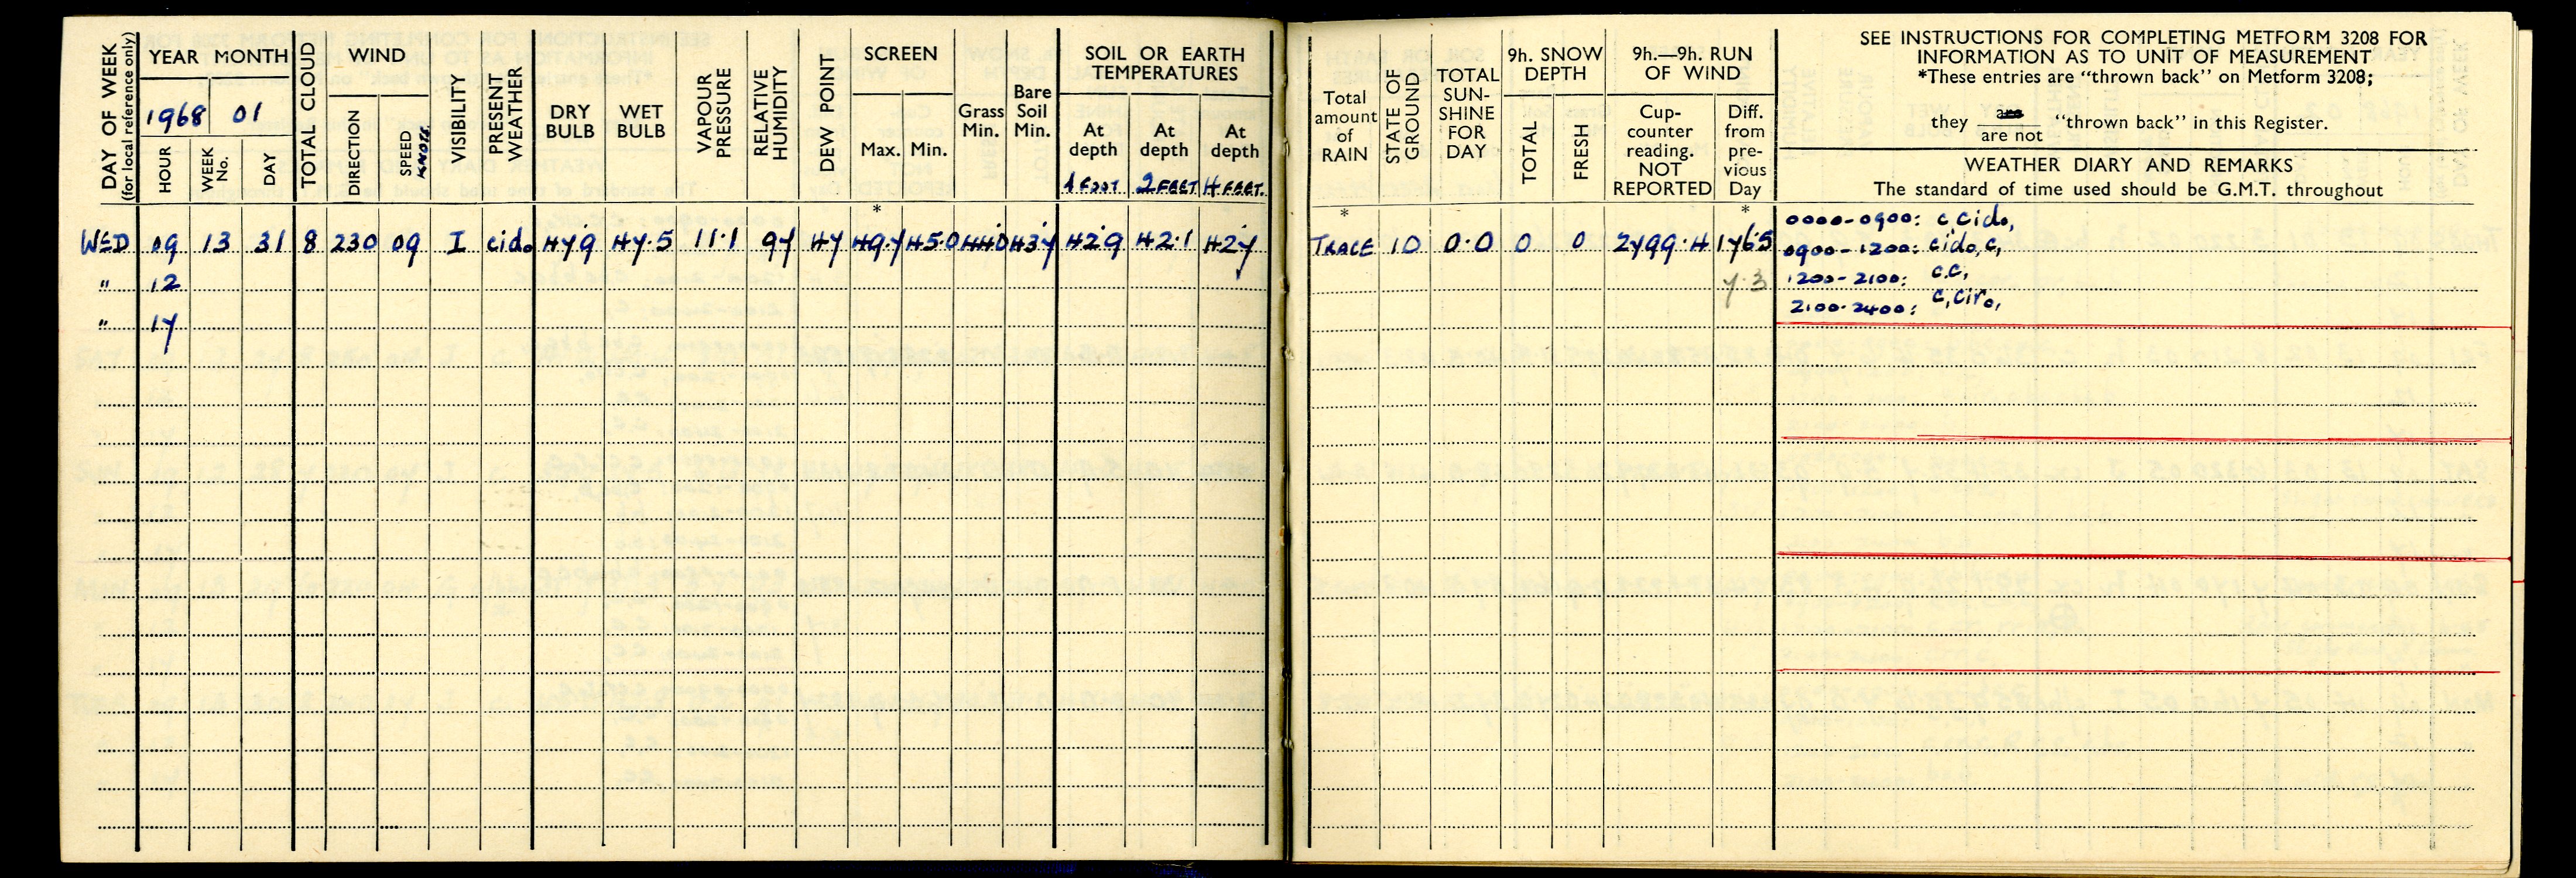 DAY OF WEEK
(for local reference only)
YEAR MONTH
1968 01
HOUR
WEEK No.
DAY
TOTAL CLOUD
WIND
DIRECTION
SPEED
KNOTS
VISIBILITY
PRESENT WEATHER
DRY BULB
WET BULB
VAPOUR PRESSURE
RELATIVE HUMIDITY
DEW POINT
SCREEN
Max. Min.
Grass Min.
Bare Soil Min.
SOIL OR EARTH TEMPERATURES
At depth
1 FOOT
At depth
2 FEET
At depth
4 FEET.
Total amount of RAIN
STATE OF GROUND
TOTAL SUN-SHINE FOR DAY
9h. SNOW DEPTH
TOTAL
FRESH
9h.—9h. RUN OF WIND
Cup-counter reading. NOT REPORTED
Diff. from pre-vious Day
SEE INSTRUCTIONS FOR COMPLETING METFORM 3208 FOR
INFORMATION AS TO UNIT OF MEASUREMENT
*These entries are "thrown back" on Metform 3208;
they are / are not "thrown back" in this Register.
WEATHER DIARY AND REMARKS
The standard of time used should be G.M.T. throughout
* * *
WED 09 13 31 8 230 09 I cido 47.9 47.5 11.1 97 47 49.7 45.0 44.0 43.7 42.9 42.1 42.7 TRACE 1D 0.0 0 0 2799.4 176.5
" 12 7.3
" 17
0000-0900: c cido,
0900-1200: cido, c,
1200-2100: c.c,
2100-2400: c, ciro,